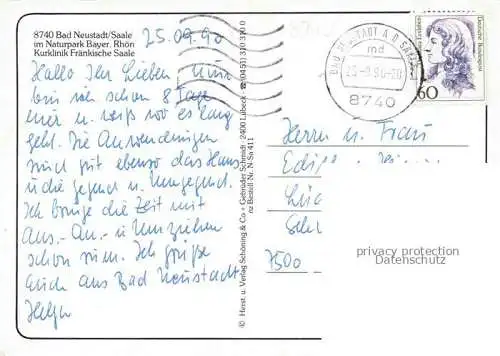 8740 Bad Neustadt/Saale
im Naturpark Bayer. Rhön
Kurklinik Fränkische Saale
25.09.90
Hallo Ihr Lieben Nun
bin ich schon 8 Tage
hier u. weiß wo es lang
geht. Die Anwendungen
sind gut ebenso das Haus
u die Gegend u. Umgegend.
Ich bringe die Zeit mit
Aus-, An-, u Umziehen
schon rum. Ich grüße
Euch aus Bad Neustadt
Helga
© Herst. u. Verlag Schöning & Co + Gebrüder Schmidt · 2400 Lübeck · ☎ (0451) 310 310
nz Bestell-Nr.: N-Sa 411
BAD NEUSTADT A D SAALE
md
25.-9.90-20
8740
Deutsche Bundespost
60
Herrn u. Frau
7500
privacy protection
Datenschutz